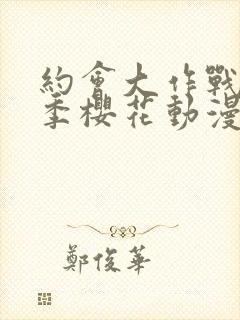 約會大作戰
季櫻花動漫
鄭俊華